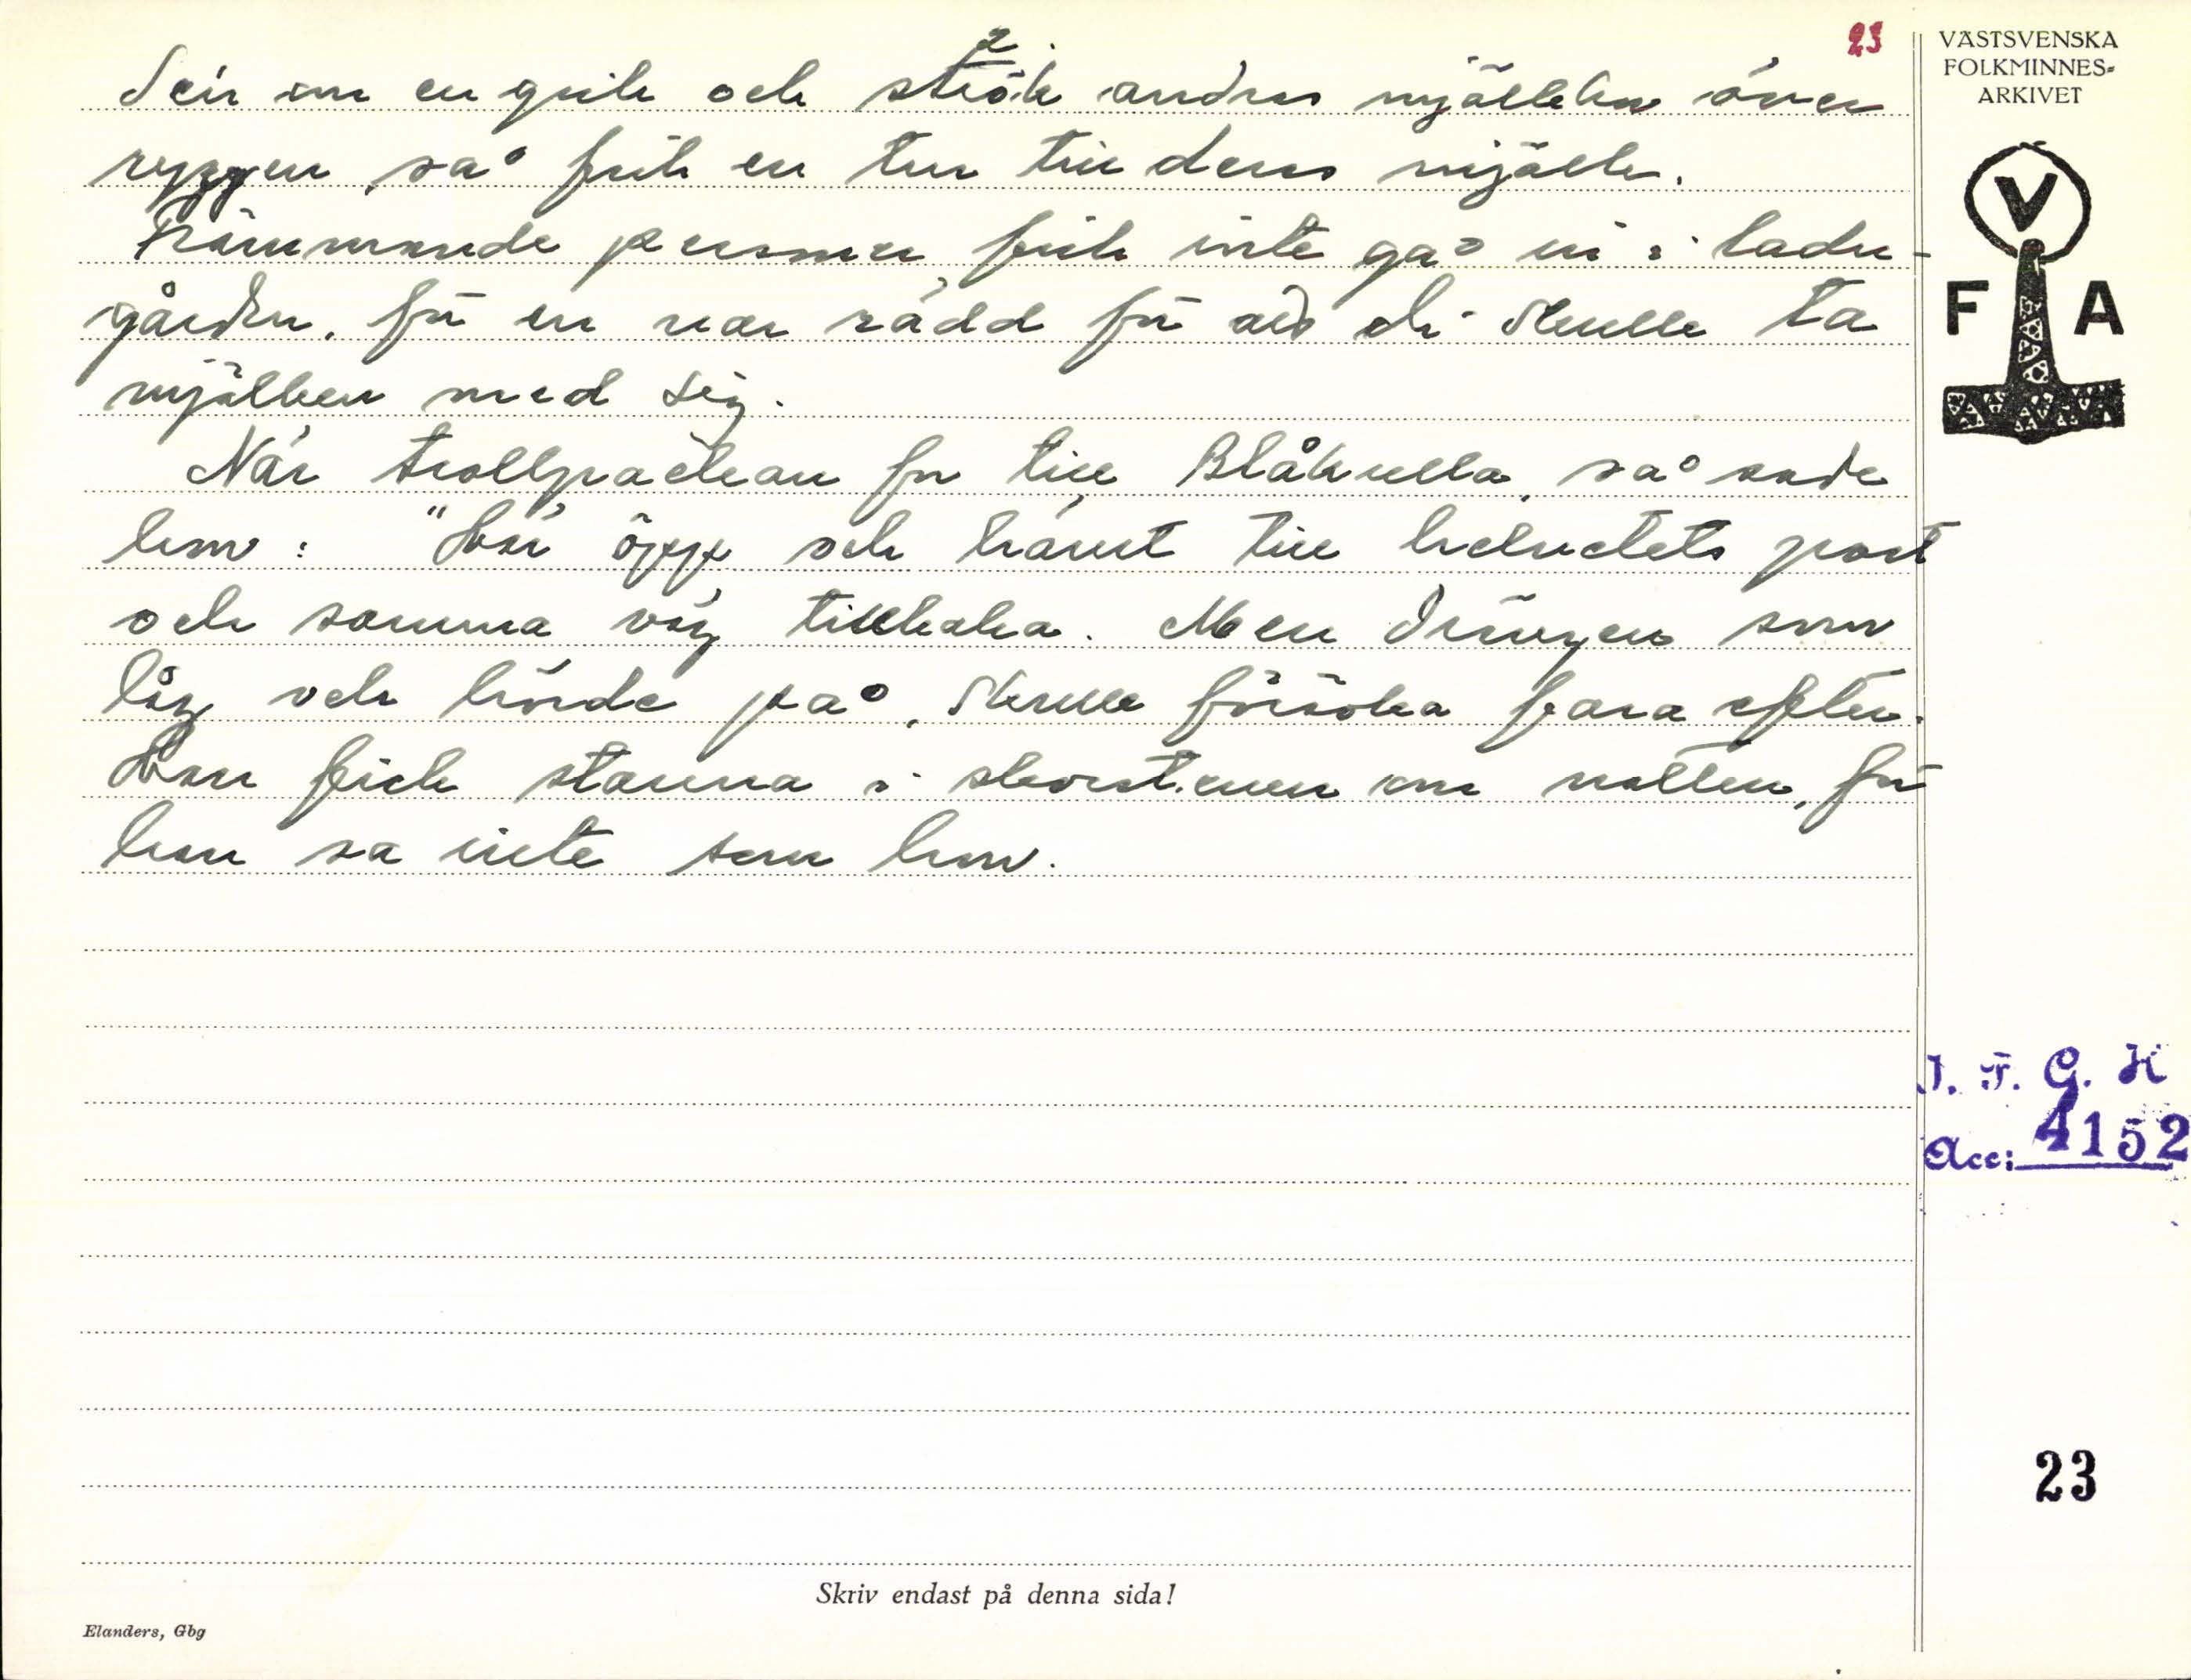 23
Sen om en gick och strök andras mjölkko över
ryggen, så fick en tur till deras mjölk.
Främmande personer fick inte gå in i ladu-
gården, för en var rädd för att di skulle ta
mjölken med sig.
När trollpackan for till Blåkulla, så sade
hon: "Hör öpp och hänt till helvetets port
och samma väg tillbaka. Men drängen som
låg och hörde på, skulle försöka fara efter.
Han fick stanna i skorstenen om natten, för
han sa inte som hon.
VÄSTSVENSKA
FOLKMINNES-
ARKIVET
V
F A
I. F. G. H
Acc: 4152
23
Skriv endast på denna sida!
Elanders, Gbg